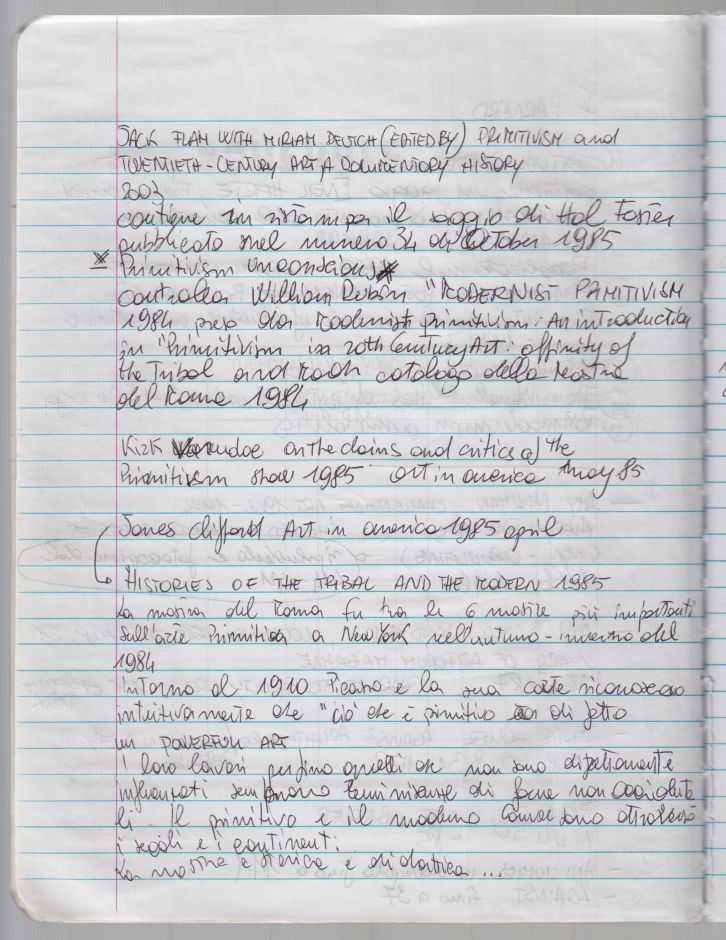 JACK FLAM WITH MIRIAM DEUTCH (EDITED BY) PRIMITIVISM and
TWENTIETH-CENTURY ART A DOCUMENTORY HISTORY
2003
contiene in ristampa il saggio di Hal Foster
pubblicato nel numero 34 di October 1985
Primitivism unconscious
controlla William Rubin "MODERNIST PRIMITIVISM
1984 preso da Modernist primitivism: An introduction
in "Primitivism in 20th Century Art: affinity of
the Tribal and Modern catalogo della Mostra
del Moma 1984
Kirk Varnedoe on the claims and critics of the
Primitivism show 1985 art in america may 85
James clifford Art in america 1985 april
HISTORIES OF THE TRIBAL AND THE MODERN 1985
La mostra del Moma fu tra le 6 mostre più importanti
sull'arte Primitiva a New York nell'autunno-inverno del
1984
intorno al 1910 Picasso e la sua corte riconoscono
intuitivamente che "ciò che è primitivo era di fatto
un POWERFUL ART
i loro lavori perfino quelli che non sono direttamente
influenzati sembrano reminiscenze di forme non occidenta
li. Il primitivo e il moderno conversano attraverso
i secoli e i continenti.
La mostra è storica e didattica...